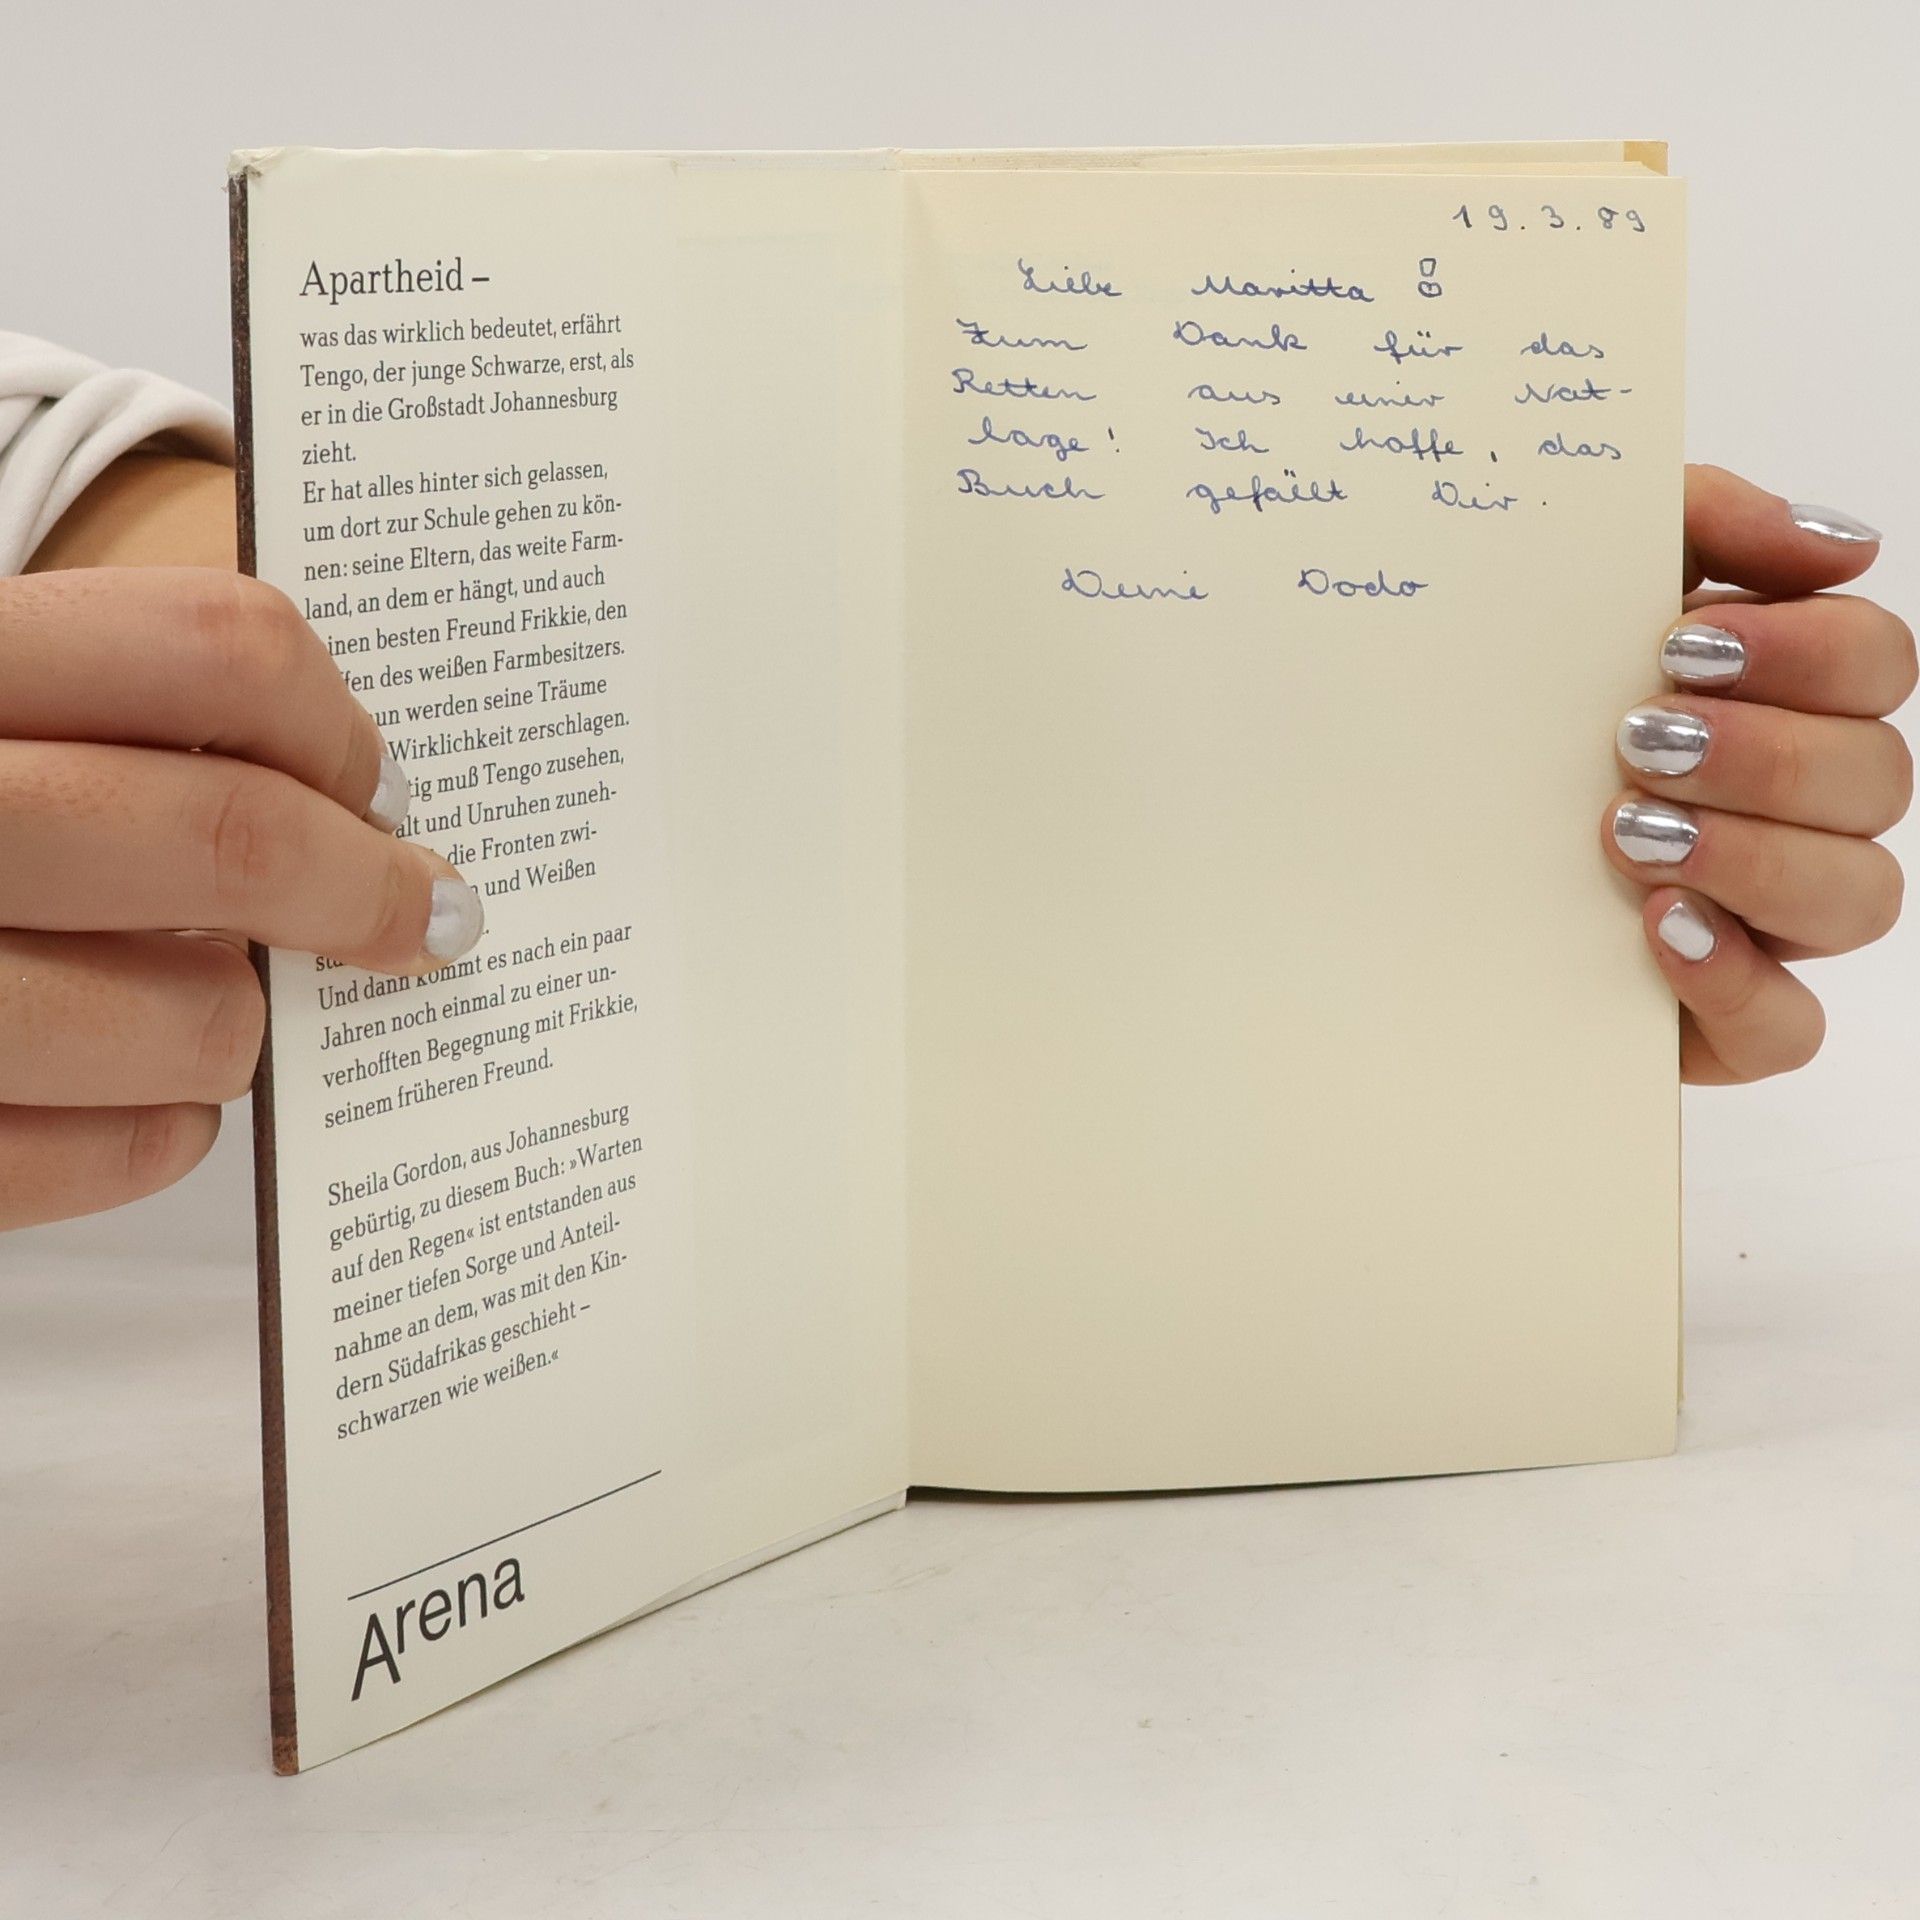 Apartheid –
was das wirklich bedeutet, erfährt
Tengo, der junge Schwarze, erst, als
er in die Großstadt Johannesburg
zieht.
Er hat alles hinter sich gelassen,
um dort zur Schule gehen zu kön-
nen: seine Eltern, das weite Farm-
land, an dem er hängt, und auch
besten Freund Frikkie, den
des weißen Farmbesitzers.
werden seine Träume
Wirklichkeit zerschlagen.
muß Tengo zusehen,
und Unruhen zuneh-
die Fronten zwi-
und Weißen
Und dann kommt es nach ein paar
Jahren noch einmal zu einer un-
verhofften Begegnung mit Frikkie,
seinem früheren Freund.
Sheila Gordon, aus Johannesburg
gebürtig, zu diesem Buch: »Warten
auf den Regen« ist entstanden aus
meiner tiefen Sorge und Anteil-
nahme an dem, was mit den Kin-
dern Südafrikas geschieht –
schwarzen wie weißen.«
Arena
19.3.89
Liebe Maritta !
Zum Dank für das
Retten aus einer Not-
lage! Ich hoffe, das
Buch gefällt Dir.
Deine Dodo